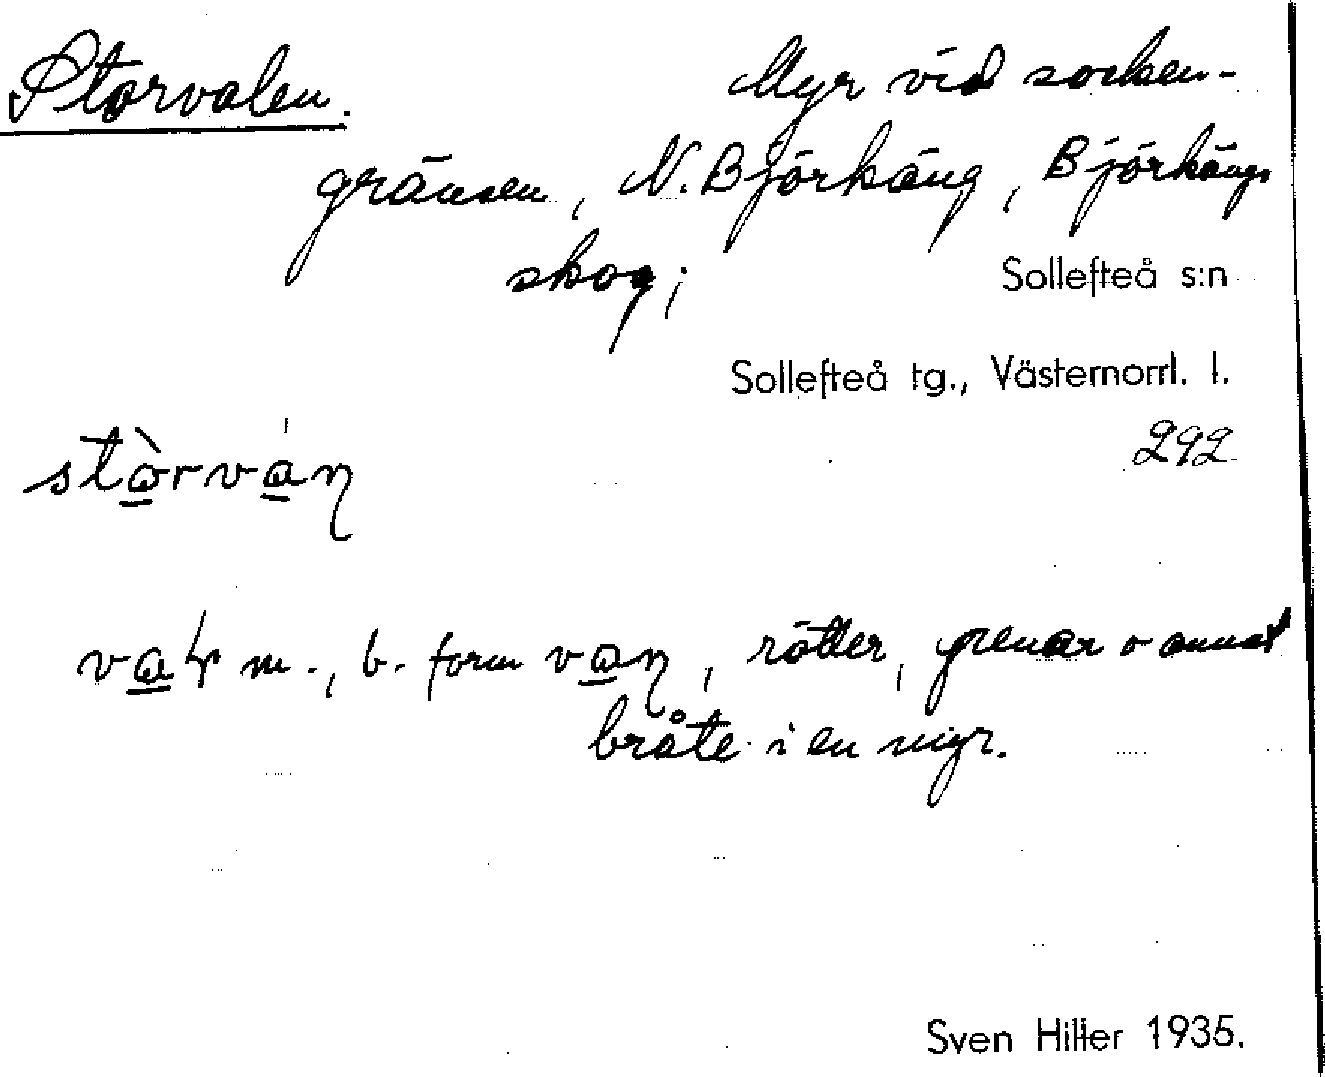 Storvalen. Myr vid socken-
gränsen, N. Björkäng, Björkängs
skog; Sollefteå s:n
Sollefteå tg., Västernorrl. l.
292
stòrván
m., b. form van, rötter, grenar o annat
bråte i en myr.
Sven Hitter 1935.